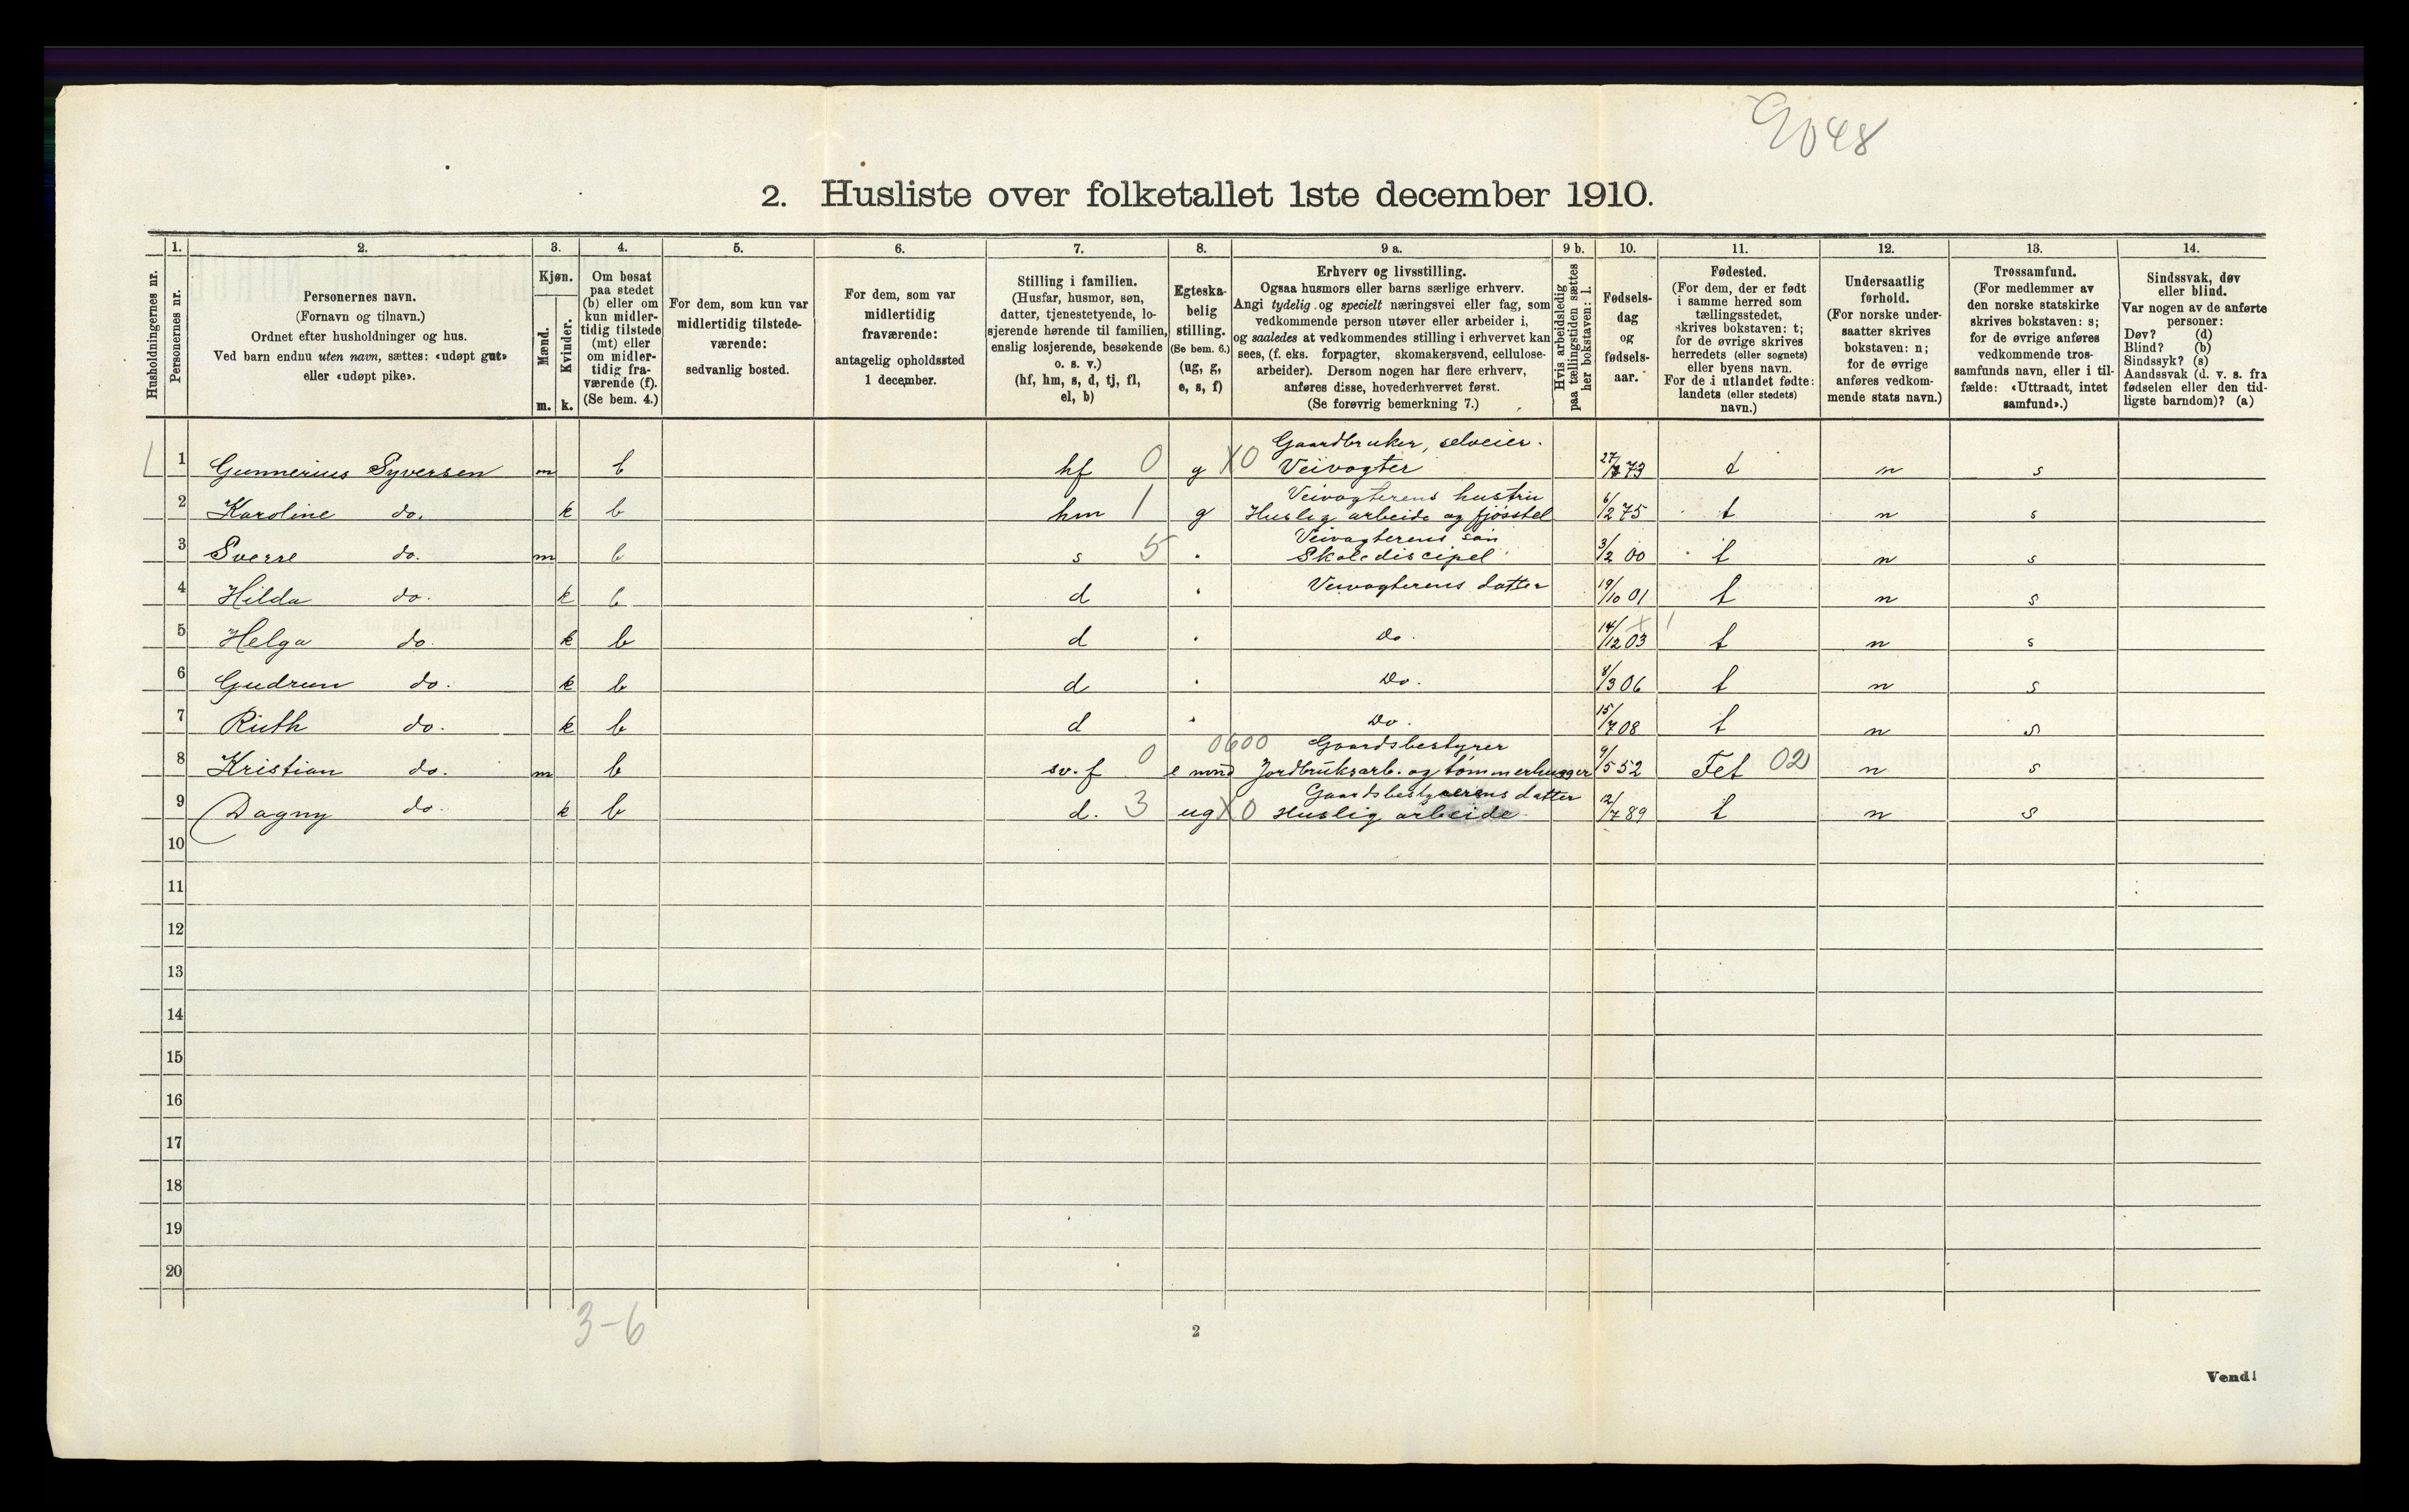 9048
2. Husliste over folketallet 1ste december 1910.
Husholdningernes nr.
1.
Personernes nr.
2.
Personernes navn.
(Fornavn og tilnavn.)
Ordnet efter husholdninger og hus.
Ved barn endnu uten navn, sættes: «udøpt gut»
eller «udøpt pike».
3.
Kjøn.
Mænd.
Kvinder.
m. k.
4.
Om bosat
paa stedet
(b) eller om
kun midler-
tidig tilstede
(mt) eller
om midler-
tidig fra-
værende (f).
(Se bem. 4.)
5.
For dem, som kun var
midlertidig tilstede-
værende:
sedvanlig bosted.
6.
For dem, som var
midlertidig
fraværende:
antagelig opholdssted
1 december.
7.
Stilling i familien.
(Husfar, husmor, søn,
datter, tjenestetyende, lo-
sjerende hørende til familien,
enslig losjerende, besøkende
o. s. v.)
(hf, hm, s, d, tj, fl,
el, b)
8.
Egteska-
belig
stilling.
(Se bem. 6.)
(ug, g,
e, s, f)
9 a.
Erhverv og livsstilling.
Ogsaa husmors eller barns særlige erhverv.
Angi tydelig og specielt næringsvei eller fag, som
vedkommende person utøver eller arbeider i,
og saaledes at vedkommendes stilling i erhvervet kan
sees, (f. eks. forpagter, skomakersvend, cellulose-
arbeider). Dersom nogen har flere erhverv,
anføres disse, hovederhvervet først.
(Se forøvrig bemerkning 7.)
9 b.
Hvis arbeidsledig
paa tællingstiden sættes
her bokstaven: l.
10.
Fødsels-
dag
og
fødsels-
aar.
11.
Fødested.
(For dem, der er født
i samme herred som
tællingsstedet,
skrives bokstaven: t;
for de øvrige skrives
herredets (eller sognets)
eller byens navn.
For de i utlandet fødte:
landets (eller stedets)
navn.)
12.
Undersaatlig
forhold.
(For norske under-
saatter skrives
bokstaven: n;
for de øvrige
anføres vedkom-
mende stats navn.)
13.
Trossamfund.
(For medlemmer av
den norske statskirke
skrives bokstaven: s;
for de øvrige anføres
vedkommende tros-
samfunds navn, eller i til-
fælde: «Uttraadt, intet
samfund».)
14.
Sindssvak, døv
eller blind.
Var nogen av de anførte
personer:
Døv? (d)
Blind? (b)
Sindssyk? (s)
Aandssvak (d. v. s. fra
fødselen eller den tid-
ligste barndom)? (a)
Gaardbruker, selveier.
1 Gunnerius Syversen m b hf 0 g X0 Veivogter 27/7 73 t n s
Veivogterens hustru
2 Karoline do. k b hm 1 g Huslig arbeide og fjøsstel 6/2 75 t n s
Veivogterens søn
3 Sverre do. m b s 5 Skolediscipel 3/2 00 t n s
4 Hilda do. k b d Veivogterens datter 19/10 01 t n s
5 Helga do. k b d Do. 14/12 03 t n s
6 Gudrun do. k b d Do. 8/3 06 t n s
7 Ruth do. k b d Do. 15/7 08 t n s
0600 Gaardsbestyrer
8 Kristian do. m b sv. f 0 e mnd Jordbruksarb. og tømmerhugger 9/5 52 Fet 02 n s
Gaardsbestyrerens datter
9 Dagny do. k b d. 3 ug X0 Huslig arbeide 12/7 89 t n s
10
11
12
13
14
15
16
17
18
19
20
3-6
2
Vend!